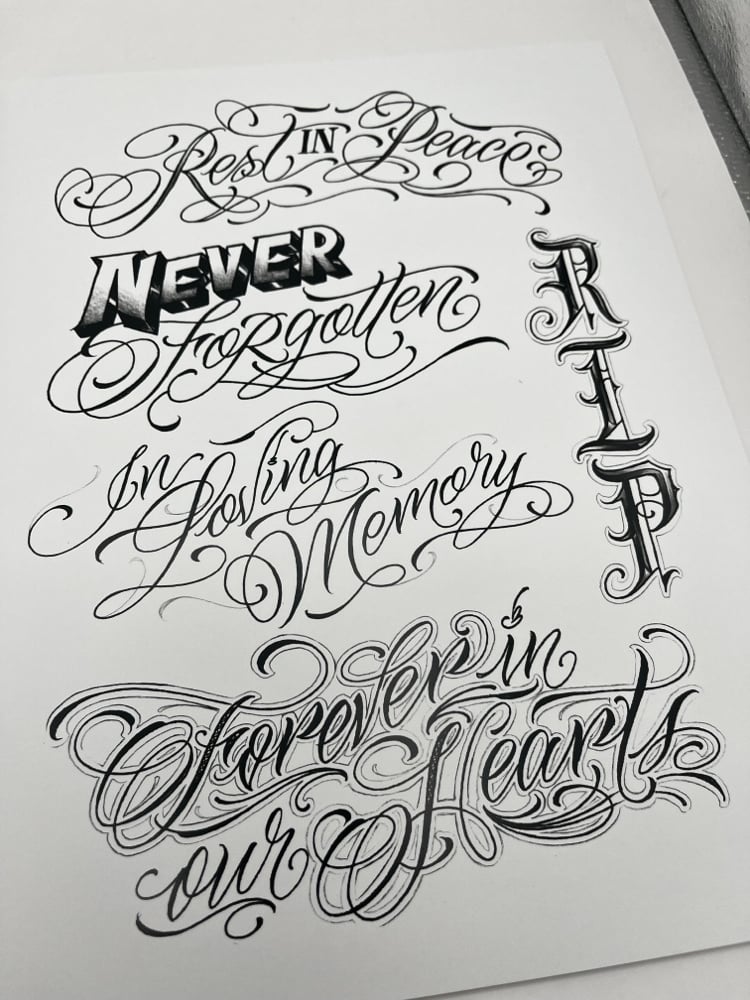 Rest IN Peace
NEVER
Forgotten
RIP
In Loving
Memory
Forever in
our Hearts